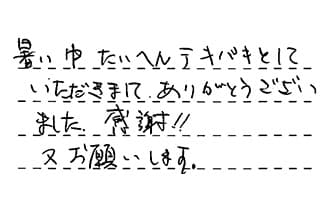 暑い中 たいへんテキパキとして
いただきまして、ありがとうござい
ました。感謝!!
又お願いします。